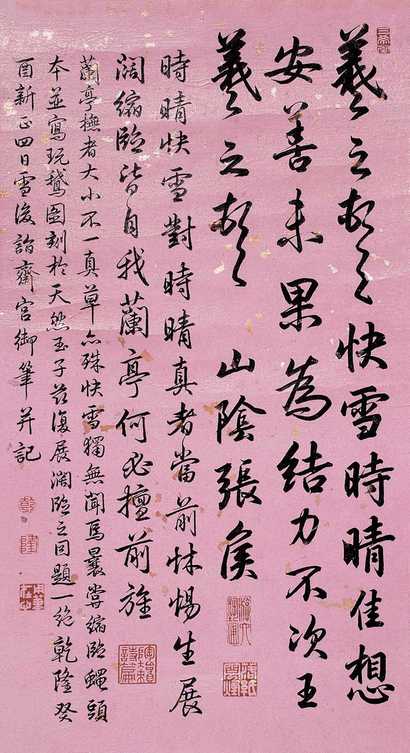 羲之頓首快雪時晴佳想
安善未果為結力不次王
羲之頓首 山陰張侯
時晴快雪對時晴真者當前怵惕生展
闊縮臨皆自我蘭亭何必擅前旌
蘭亭橅者大小不一真草亦殊快雪獨無聞焉曩嘗縮臨蠅頭
本並寫玩鵝圖刻於天然玉子茲復展闊臨之因題一絕乾隆癸
酉新正四日雪後詣齋宮御筆并記
乾
隆